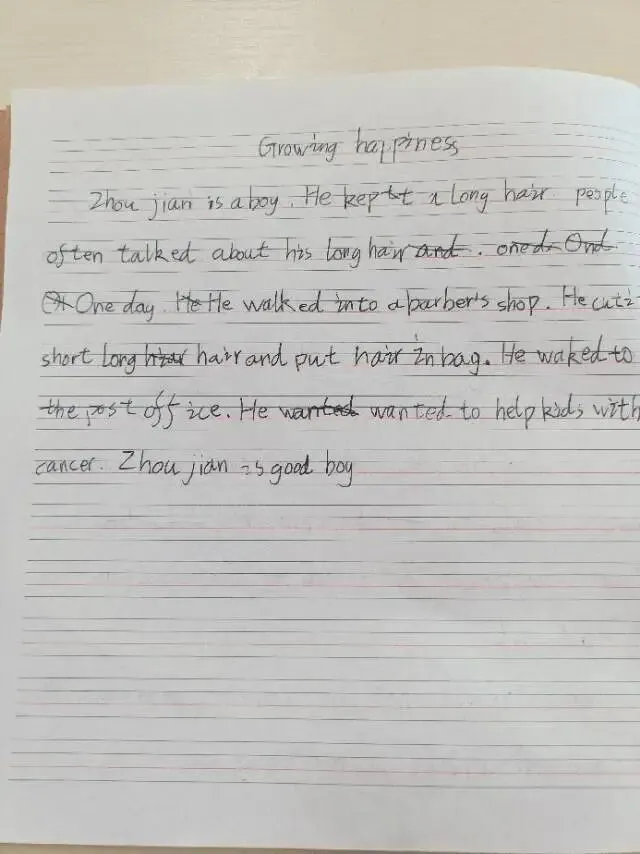 Growing happiness
Zhou jian is a boy. He kept a long hair people
often talked about his long hair .
One day He walked into a barber's shop. He cut
short long hair and put hair in bag. He waked to
the post office. He wanted to help kids with
cancer. Zhou jian is good boy